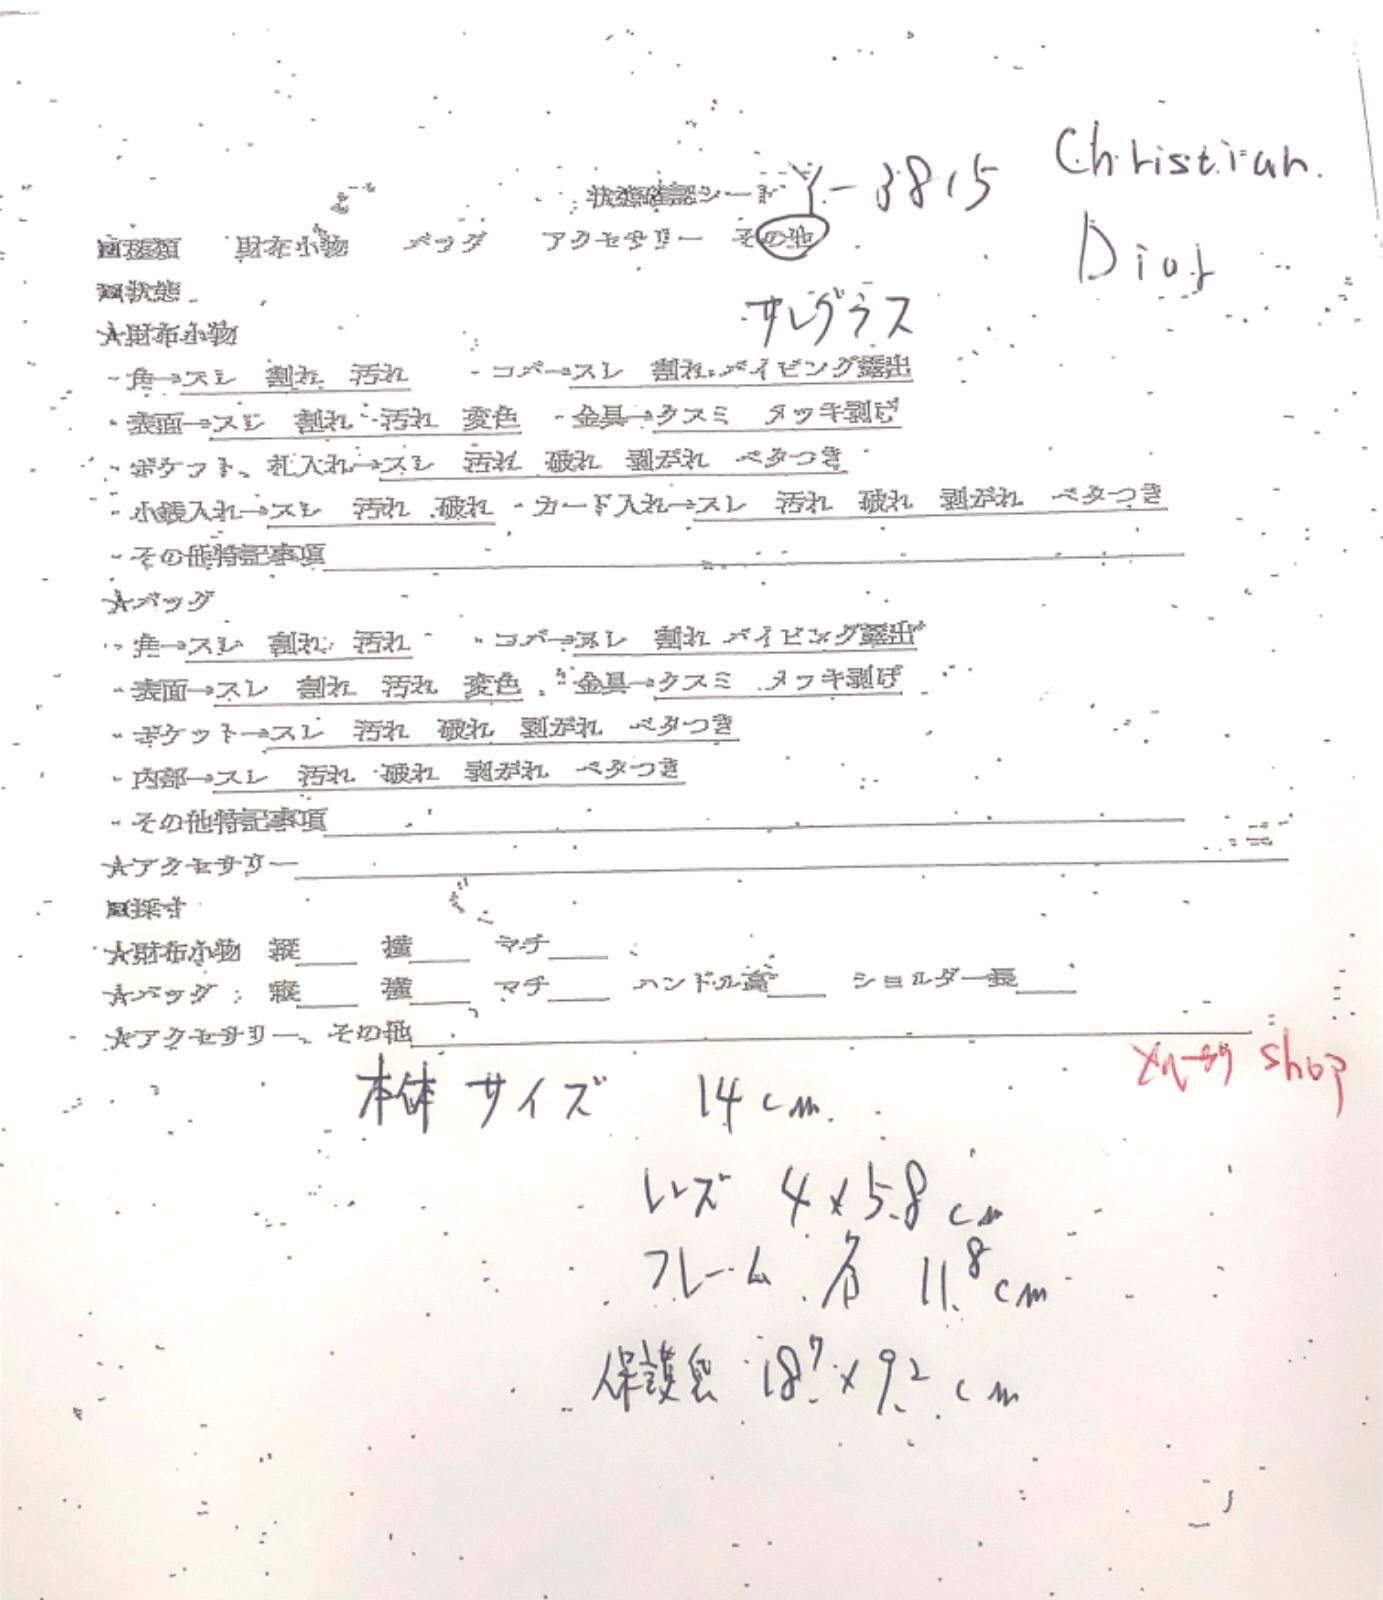 状態確認シート Y-3815 Christian
Dior
■種類 財布小物 バッグ アクセサリー その他
■状態
サングラス
★財布小物
・角→スレ 割れ 汚れ ・コバ→スレ 割れ パイピング露出
・表面→スレ 割れ 汚れ 変色 ・金具→クスミ メッキ剥げ
・ポケット、札入れ→スレ 汚れ 破れ 剥がれ ベタつき
・小銭入れ→スレ 汚れ 破れ ・カード入れ→スレ 汚れ 破れ 剥がれ ベタつき
・その他特記事項
★バッグ
・角→スレ 割れ 汚れ ・コバ→スレ 割れ パイピング露出
・表面→スレ 割れ 汚れ 変色 ・金具→クスミ メッキ剥げ
・ポケット→スレ 汚れ 破れ 剥がれ ベタつき
・内部→スレ 汚れ 破れ 剥がれ ベタつき
・その他特記事項
★アクセサリー
■採寸
★財布小物 縦 横 マチ
★バッグ 縦 横 マチ ハンドル高 ショルダー長
★アクセサリー、その他
shop
本体サイズ 14cm
レンズ 4×5.8cm
フレーム 11.8cm
保護 18.7×9.2cm